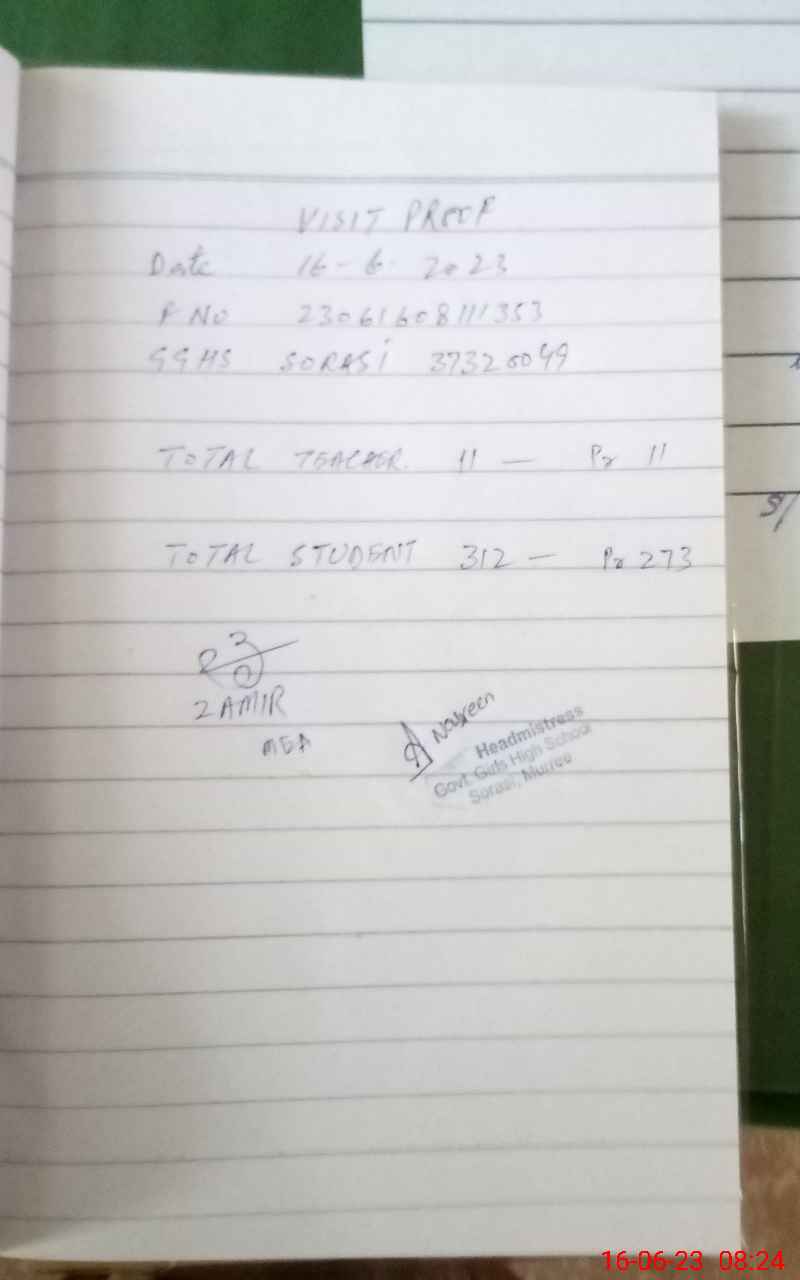 VISIT PROOF
Date 16-6-2023
F NO 23061608111353
GGHS SORASI 37320099
TOTAL TEACHER. 11 — Pr 11
TOTAL STUDENT 312 — Pr 273
ZAMIR
MEA
Nasreen
Headmistress
Govt. Girls High School
Sorasi, Murree
16-06-23 08:24